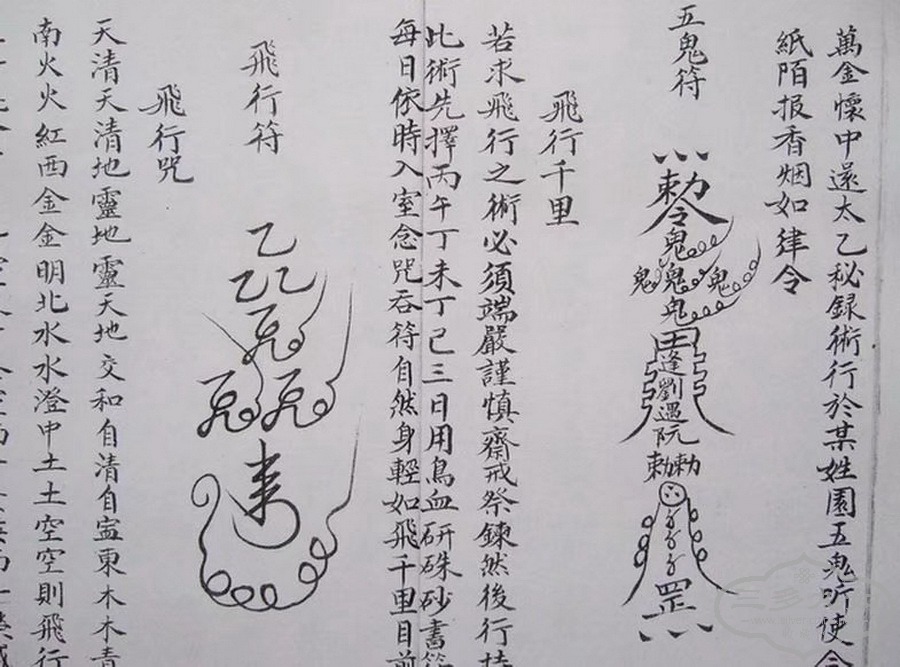 萬金懷中還太乙秘録術行於某姓園五鬼听使令
紙陌报香烟如律令
五鬼符
勅令
鬼
鬼鬼鬼
鬼
田
逢劉遇阮
勅勅
罡
飛行千里
若求飛行之術必須端嚴謹慎齋戒祭鍊然後行持
此術先擇丙午丁未丁己三日用鳥血研硃砂書符
每日依時入室念咒吞符自然身輕如飛千里目前
飛行符
乙
乙乙
飛行咒
天清天清地靈地靈天地交和自清自寍東木木青
南火火紅西金金明北水水澄中土土空空則飛行